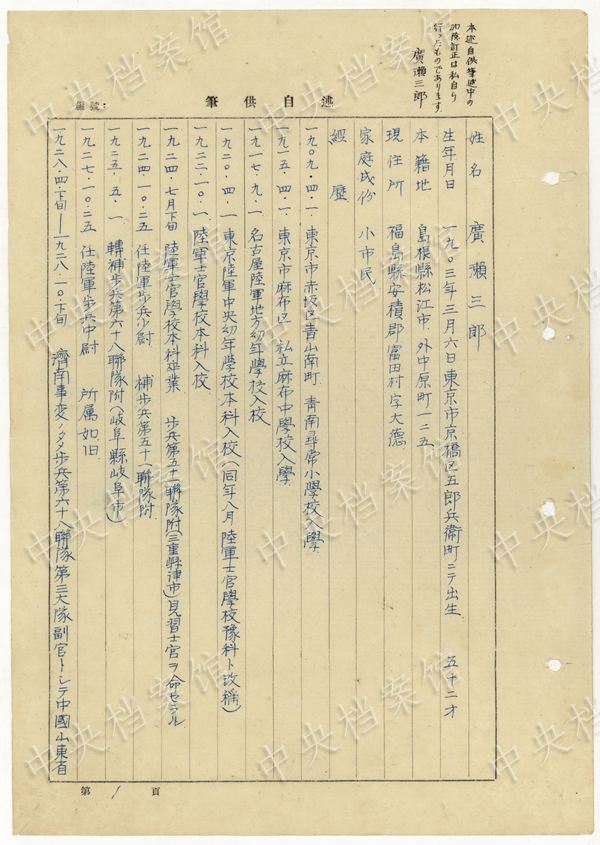 本述自供筆述中の
加除訂正は私自ら
行ったものであります.
廣瀬三郎
編號:
述自供筆
姓名　廣瀬三郎
生年月日　一九〇三年三月六日東京市京橋区五郎兵衛町ニテ出生　五十二才
本籍地　島根縣松江市外中原町一二五
現住所　福島縣安積郡富田村字大德
家庭成份　小市民
經歷
一九〇九・四・一　東京市赤坂区青山南町青南尋常小学校入學
一九一五・四・一　東京市麻布区私立麻布中學校入學
一九一七・九・一　名古屋陸軍地方幼年學校入校
一九二〇・四・一　東京陸軍中央幼年學校本科入校(同年八月陸軍士官學校豫科ト改稱)
一九二二・一〇・一　陸軍士官學校本科入校
一九二四・七月下旬　陸軍士官学校本科卒業　步兵第五十一聯隊附(三重縣津市)見習士官ヲ命セラル
一九二四・一〇・二五　任陸軍步兵少尉　補步兵第五十一聯隊附
一九二五・五・一　轉補步兵第六十八聯隊附(岐阜縣岐阜市)
一九二七・一〇・二五　任陸軍步兵中尉　所属如旧
一九二八・四・下旬—一九二八・一〇・下旬　濟南事変ノタメ步兵第六十八聯隊第三大隊副官トシテ中國山東省
第 1 頁
中央档案馆